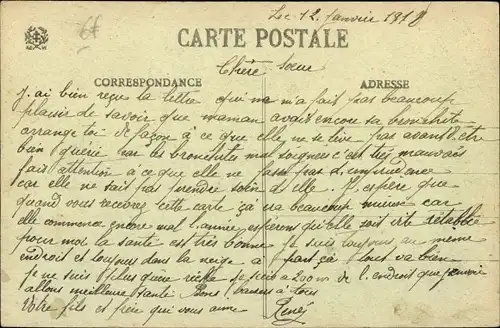 Le 12 Janvier 1918
CARTE POSTALE
Chère Sœur
CORRESPONDANCE
ADRESSE
J'ai bien reçue la lettre qui ne m'a fait pas beaucoup
plaisir de savoir que maman avait encore sa bronchite
arrange toi de façon à ce que elle ne se lève pas avant d'etre
bien guérie car les bronchites mal soignés c'est très mauvais
fait attention à ce que elle ne fasse pas d'imprudence
car elle ne sait pas prendre soin d'elle. J'espère que
quand vous recevrez cette carte ça ira beaucoup mieux car
elle commence encore mal l'année espérons qu'elle soit vite rétablie
pour moi la santé est très bonne je suis toujours au meme
endroit et toujours dans la neige à part ça tout va bien
je ne suis plus qu'une je suis à 200 m de l'endroit que
allons meilleure santé Bons baisers à tous
Votre fils et frère qui vous aime René